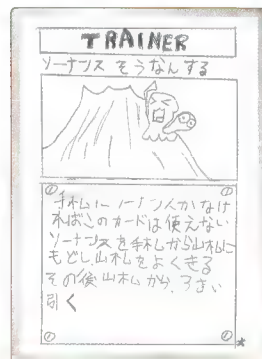 TRAINER
ソーナンス そうなんする
手札にソーナンスがなけ
ればこのカードは使えない
ソーナンスを手札から山札に
もどし山札をよくきる
その後山札から、3まい
引く